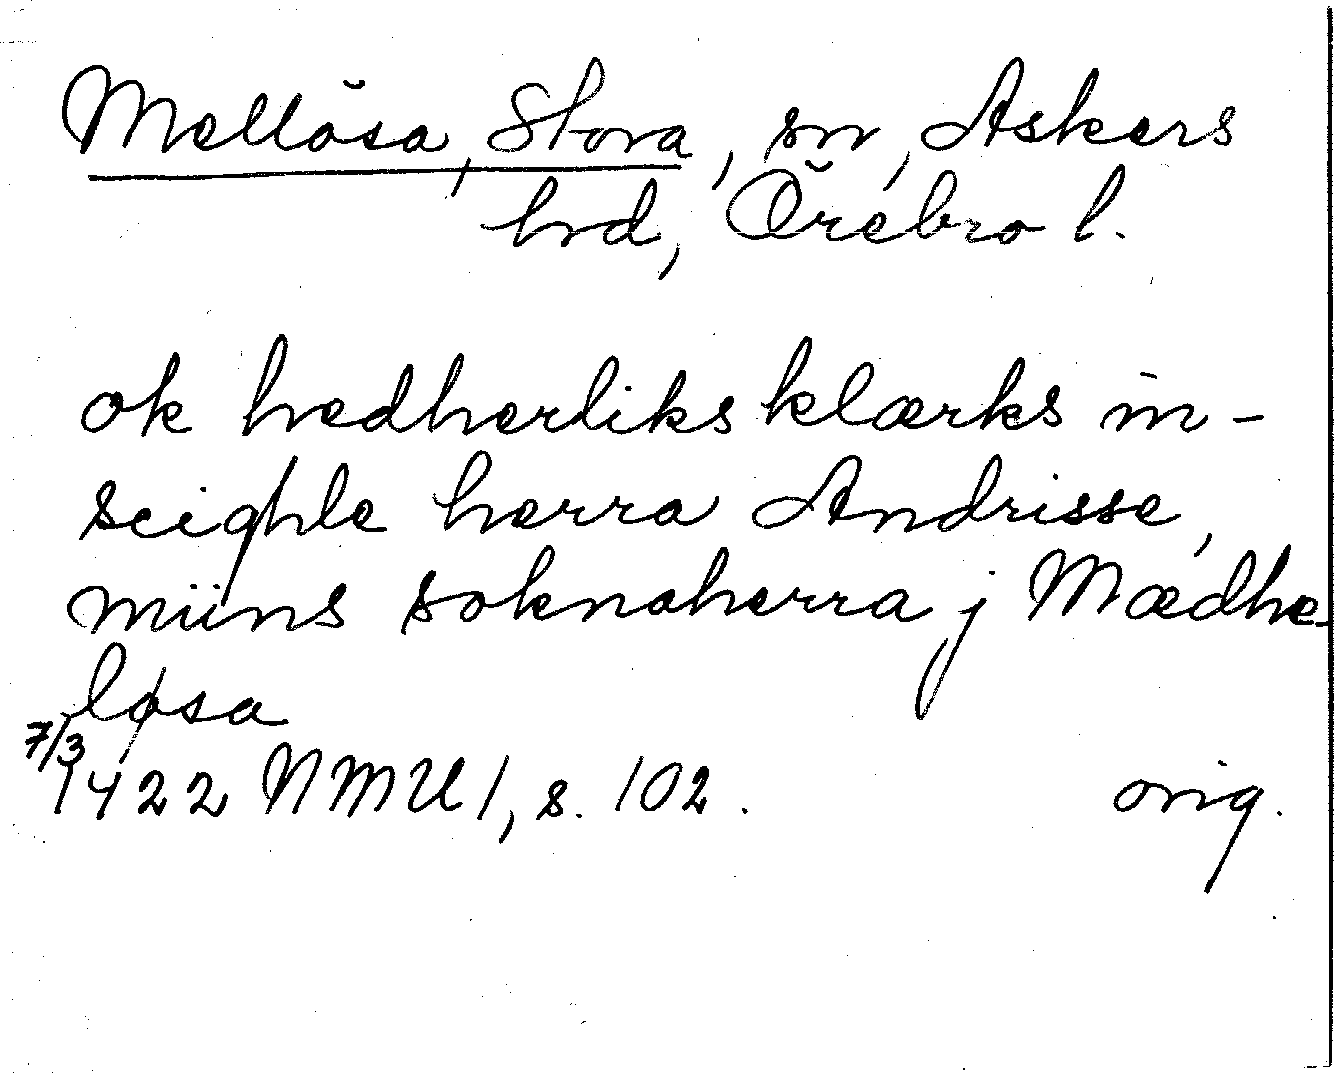 Mellösa, Stora, sn, Askers
hd, Örebro l.
ok hedherliks klærks in-
seighle herra Andrisse,
miins soknaherra j Mædhe-
løsa
7/3
1422 NMU 1, s. 102. orig.